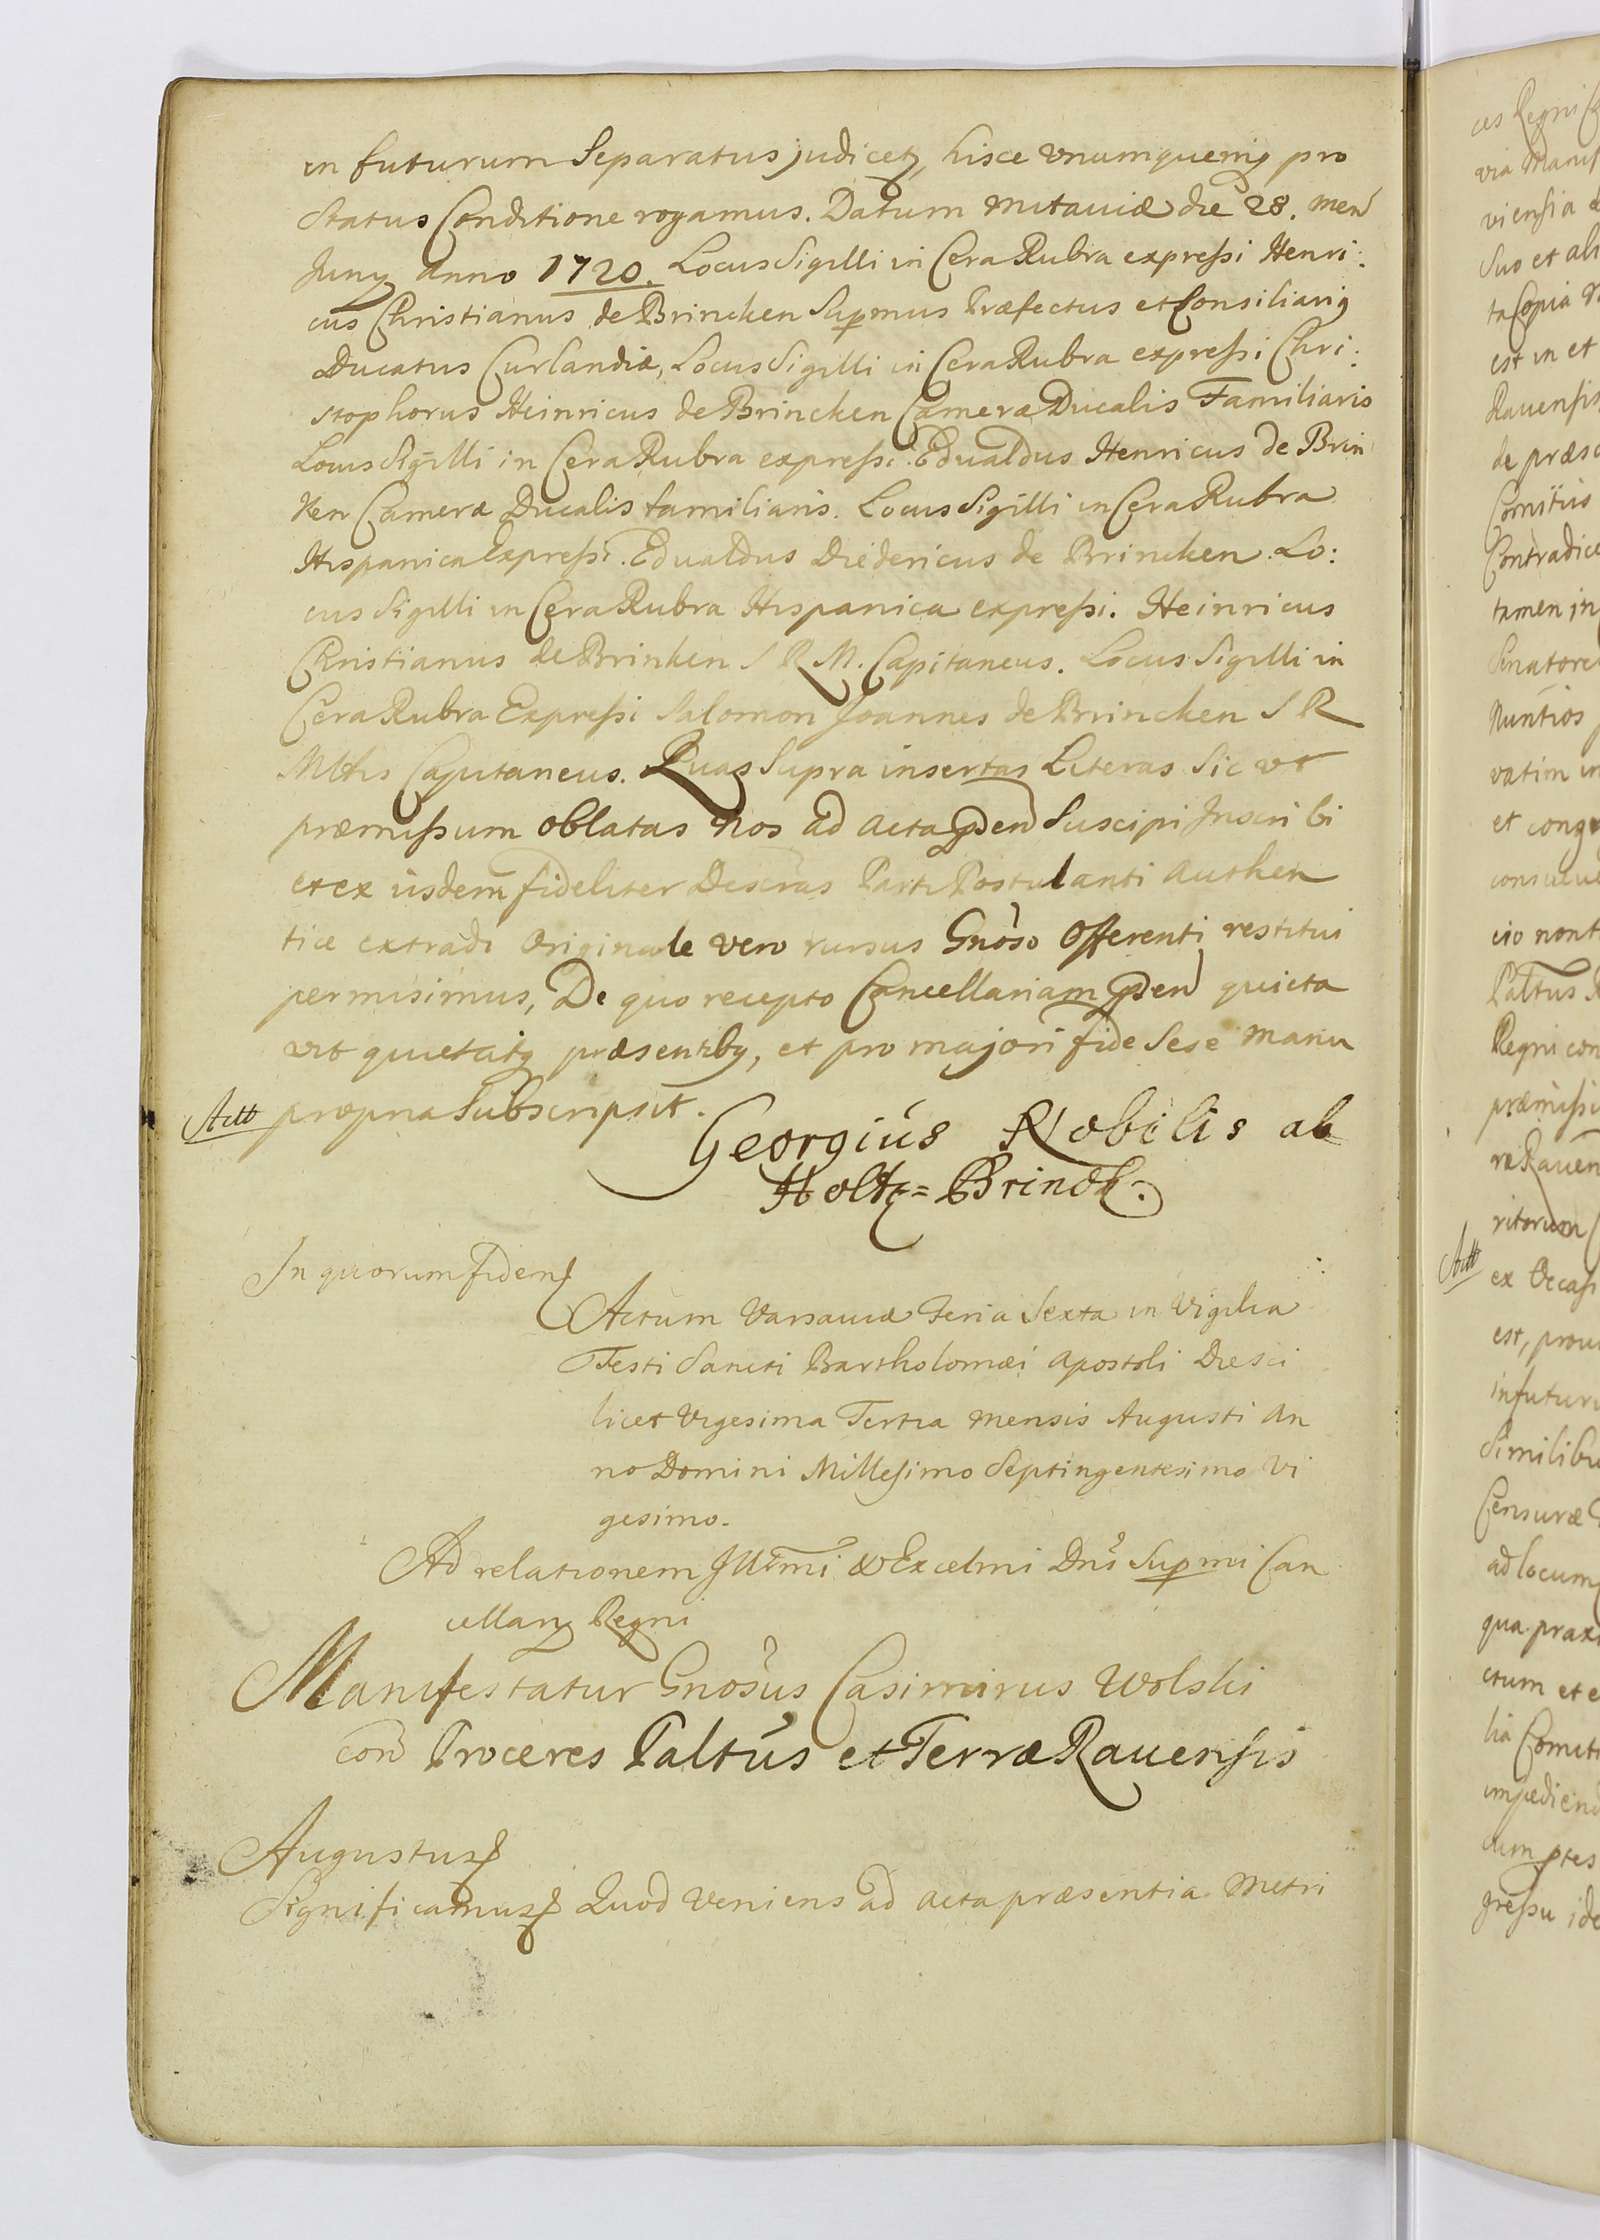 in futurum Separatus judicetz, hisce vnumquemq pro
Status Conditione rogamus. Datum Mitaviæ die 28. men
Juny Anno 1720. Locus Sigilli in Cera Rubra expressi Henri:
cus Christianus de Brincken Supmus Præfectus et Consiliariq
Ducatus Curlandiæ, Locus Sigilli in Cera Rubra expressi Chri:
stophorus Heinricus de Brincken Cameræ Ducalis Familiaris
Locus Sigilli in Cera Rubra expressi. Edualdus Henricus de Brin
ken Cameræ Ducalis familiaris. Locus Sigilli in Cera Rubra
Hispanica Expressi. Edualdus Diedericus de Brincken. Lo:
cus Sigilli in Cera Rubra Hispanica expressi. Heinricus
Christianus de Brinken S R M. Capitaneus. Locus Sigilli in
Cera Rubra Expressi Salomon Joannes de Brincken S R
Mttis Capitaneus. Quas Supra insertas Literas Sic vt
præmissum oblatas Nos ad Acta psen Suscipi Inscribi
et ex iisdem fideliter Descras Parti Postulanti Authen
tice extradi Originale vero rursus Gnoso Offerenti restitui
permisimus, De quo recepto Cancellariam psen quieta
vit quietatq præsentibq, et pro majori fide Sese Manu
Actt propria Subscripsit.
Georgius Nobilis ab
Holtz=Brinck:
In quorum fidem
Actum Varsaviæ Feria Sexta in Vigilia
Festi Sancti Bartholomæi Apostoli Die sci
licet Vigesima Tertia Mensis Augusti An
no Domini Millesimo Septingentesimo Vi
gesimo.
Ad relationem Illrmi & Excelmi Dni Supmi Can
cellary Regni
Manifestatur Gnosus Casimirus Wolski
con Proceres Paltus et Terræ Ravensis
Augustus
Significamus Quod Veniens ad Acta præsentia Metri
ces Regni
viensia
Suo et
ta Copia
est in et
Ravensis
de
Comitiis
tamen in
Nuntios
vatim
et
cio
Paltus
Regni
ritorum
Actt
ex
est,
ad locum
qua
ctum et
lia